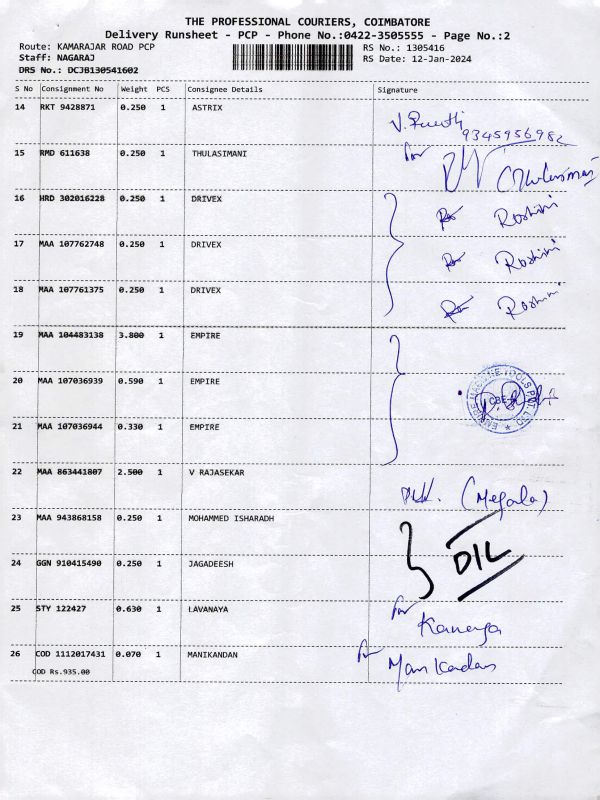 THE PROFESSIONAL COURIERS, COIMBATORE
Delivery Runsheet - PCP - Phone No.:0422-3505555 - Page No.:2
Route: KAMARAJAR ROAD PCP RS No.: 1305416
Staff: NAGARAJ RS Date: 12-Jan-2024
DRS No.: DCJB130541602
S No Consignment No Weight PCS Consignee Details Signature
14 RKT 9428871 0.250 1 ASTRIX
9345956982
15 RMD 611638 0.250 1 THULASIMANI for
16 HRD 302016228 0.250 1 DRIVEX Roshini
17 MAA 107762748 0.250 1 DRIVEX Roshini
18 MAA 107761375 0.250 1 DRIVEX Roshini
19 MAA 104483138 3.800 1 EMPIRE
20 MAA 107036939 0.590 1 EMPIRE EMPIRE MACHINE TOOLS PVT LTD CBE
21 MAA 107036944 0.330 1 EMPIRE
22 MAA 863441807 2.500 1 V RAJASEKAR (Megala)
23 MAA 943868158 0.250 1 MOHAMMED ISHARADH
24 GGN 910415490 0.250 1 JAGADEESH DIL
25 STY 122427 0.630 1 LAVANAYA for
26 COD 1112017431 0.070 1 MANIKANDAN for Manikandan
COD Rs.935.00